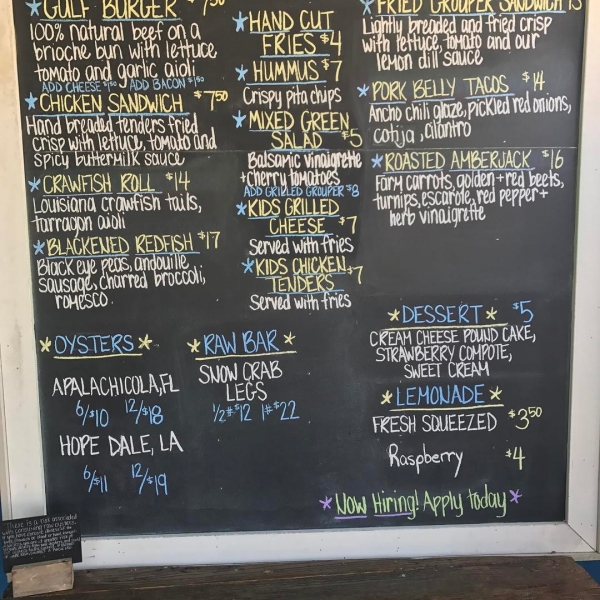 GULF BURGER $7.50
100% natural beef on a
brioche bun with lettuce,
tomato and garlic aioli
ADD CHEESE $1.50 ADD BACON $1.50
CHICKEN SANDWICH $7.50
Hand breaded tenders fried
crisp with lettuce, tomato and
spicy buttermilk sauce
CRAWFISH ROLL $14
Louisiana crawfish tails,
tarragon aioli
BLACKENED REDFISH $17
Black eye peas, andouille
sausage, charred broccoli,
romesco.
HAND CUT
FRIES $4
HUMMUS $7
Crispy pita chips
MIXED GREEN
SALAD $5
Balsamic vinaigrette
+ cherry tomatoes
ADD GRILLED GROUPER $8
KIDS GRILLED
CHEESE $7
Served with fries
KIDS CHICKEN
TENDERS $7
Served with fries
FRIED GROUPER SANDWICH 15
Lightly breaded and fried crisp
with lettuce, tomato and our
lemon dill sauce
PORK BELLY TACOS $14
Ancho chili glaze, pickled red onions,
cotija, cilantro
ROASTED AMBERJACK $16
Farm carrots, golden + red beets,
turnips, escarole, red pepper +
herb vinaigrette
OYSTERS
APALACHICOLA, FL
6/$10 12/$18
HOPE DALE, LA
6/$11 12/$19
RAW BAR
SNOW CRAB
LEGS
1/2# $12 1# $22
DESSERT $5
CREAM CHEESE POUND CAKE,
STRAWBERRY COMPOTE,
SWEET CREAM
LEMONADE
FRESH SQUEEZED $3.50
Raspberry $4
Now Hiring! Apply today
There is a risk associated